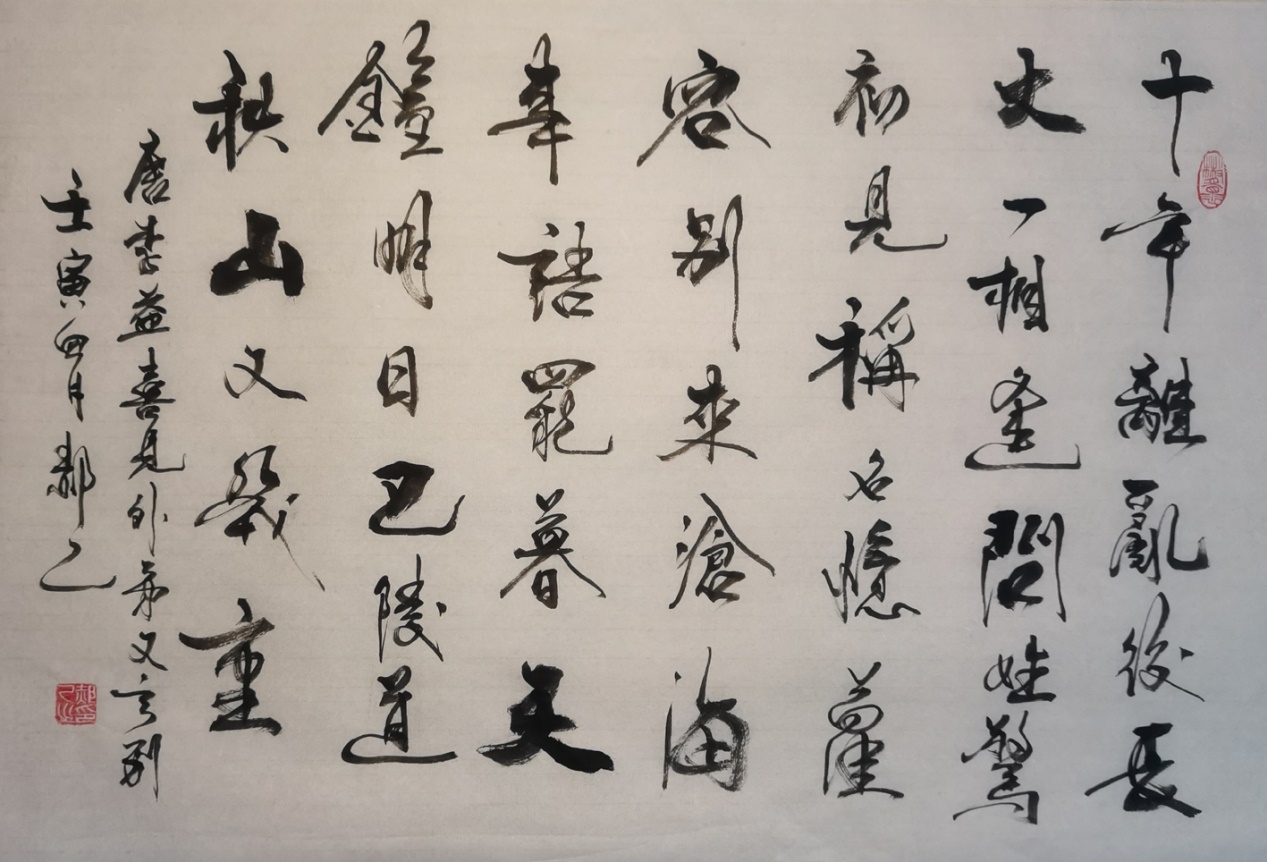 十年離亂後長
丈一相逢問姓驚
初見稱名憶舊
容別來滄海
事語罷暮天
鐘明日巴陵道
秋山又幾重
唐李益喜見外弟又言別
壬寅四月郝乙